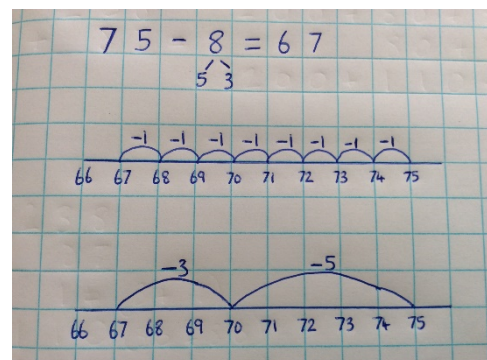 75 - 8 = 67
5 3
-1 -1 -1 -1 -1 -1 -1 -1
66 67 68 69 70 71 72 73 74 75
-3 -5
66 67 68 69 70 71 72 73 74 75